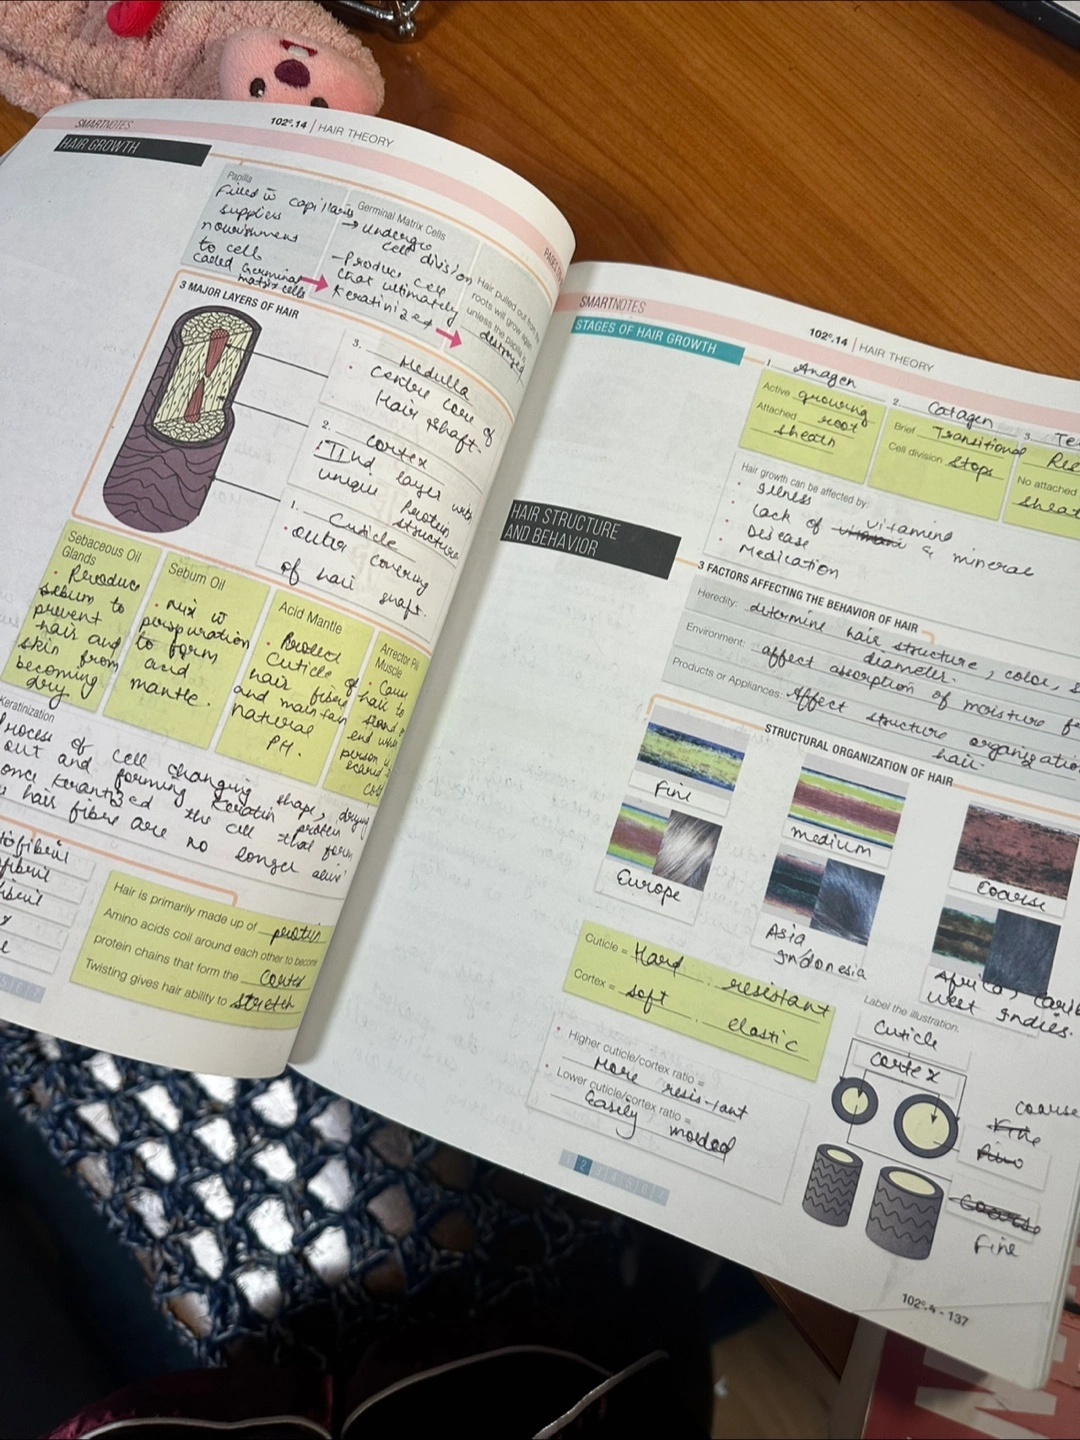 SMARTNOTES
102º.14 | HAIR THEORY
HAIR GROWTH
Papilla
Filled w̄ capillaris
supplies
nourishment
to cell
called Germinal
matrix cells
Germinal Matrix Cells
→ undergo
cell division
- Produce cell
that ultimately
Keratinized
Hair pulled out from the
roots will grow again
unless the papilla is
destroyed
3 MAJOR LAYERS OF HAIR
3. Medulla
• centre core of
Hair shaft.
2. cortex
IInd layer with
unique Protein
structure
1. Cuticle
• outer covering
of hair shaft.
Sebaceous Oil
Glands
• Produce
sebum to
prevent
hair and
skin from
becoming
dry
Sebum Oil
• mix w̄
perspiration
to form
acid
mantle.
Acid Mantle
• Protect
Cuticle of
hair fibre
and maintain
natural
PH.
Arrector Pili
Muscle
• Cause
hair to
stand
end when
person is
scared
cold
Keratinization
Process of cell changing shape, drying
out and forming Keratin protein
once Kerantized the cell that form
hair fibre are no longer alive'
Hair is primarily made up of protin
Amino acids coil around each other to become
protein chains that form the cortex
Twisting gives hair ability to stretch
SMARTNOTES
102º.14 | HAIR THEORY
STAGES OF HAIR GROWTH
1. Anagen
Active growing
Attached root
shearn
2. Catagen
Brief Transitional
Cell division stops
3. Te
Res
No attached
Sheat
Hair growth can be affected by:
• Illness
• Lack of vitamins & mineral
• Disease
• Medication
HAIR STRUCTURE
AND BEHAVIOR
3 FACTORS AFFECTING THE BEHAVIOR OF HAIR
Heredity: determine hair structure, color,
diameter.
Environment: affect absorption of moisture
Products or Appliances: Affect structure organization
hair.
STRUCTURAL ORGANIZATION OF HAIR
Fine
medium
Coarse
Europe
Asia
Indonesia
Africa, Carib
West Indies.
Cuticle = Hard resistant
Cortex = soft elastic
• Higher cuticle/cortex ratio =
More resis-tant
• Lower cuticle/cortex ratio =
Easily molded
Label the illustration.
Cuticle
cortex
coarse
Fine
Coarse
Fine
1 2 3 4 5 6 7
102º.4 - 137